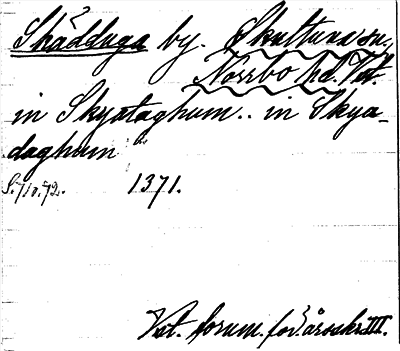 Skädduga by. Skultuna sn.,
Norrbo hd. Vstm.
in Skyataghum.. in Skya-
daghum
S. 71 o. 72. 1371.
Vst. fornm. för. årsskr. III.